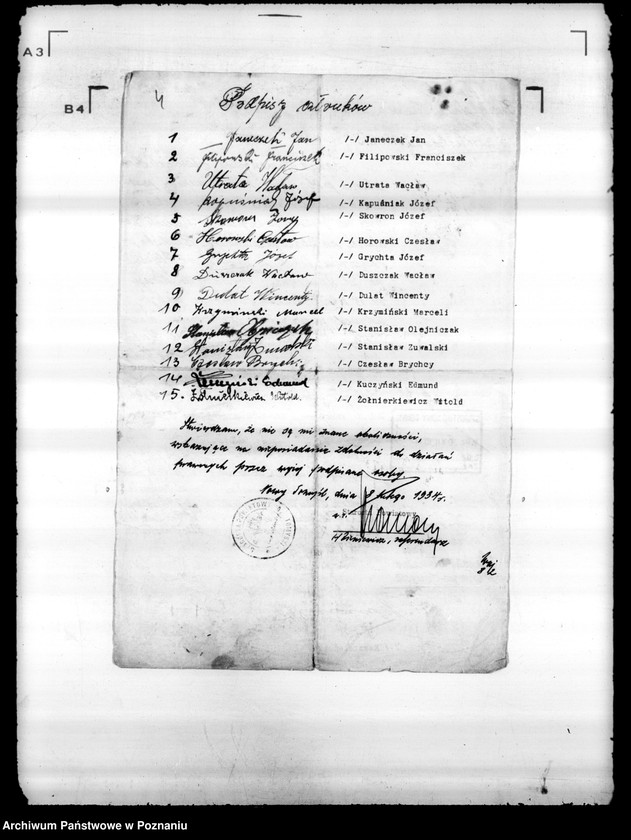 A3
B4
4
Podpisy członków
1 Janeczek Jan /-/ Janeczek Jan
2 Filipowski Franciszek /-/ Filipowski Franciszek
3 Utrata Wacław /-/ Utrata Wacław
4 Kapuśniak Józef /-/ Kapuśniak Józef
5 Skowron Józef /-/ Skowron Józef
6 Horowski Czesław /-/ Horowski Czesław
7 Grychta Józef /-/ Grychta Józef
8 Duszczak Wacław /-/ Duszczak Wacław
9) Dulat Wincenty /-/ Dulat Wincenty
10 Krzymiński Marceli /-/ Krzymiński Marceli
11 Stanisław Olejniczak /-/ Stanisław Olejniczak
12 Stanisław Zuwalski /-/ Stanisław Zuwalski
13 Czesław Brychcy /-/ Czesław Brychcy
14 Kuczyński Edmund /-/ Kuczyński Edmund
15. Żołnierkiewicz Witold. /-/ Żołnierkiewicz Witold
Stwierdzam, że nie są mi znane okoliczności,
wskazujące na nieposiadanie zdolności do działań
prawnych przez wyżej podpisane osoby
Nowy Tomyśl, dnia 8 lutego 1934 r.
Starosta Powiatowy
referendarz
Archiwum Państwowe w Poznaniu